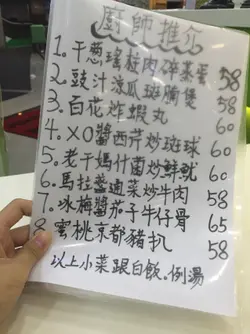 廚師推介
1. 干蔥瑤柱肉碎蒸蛋 58
2. 豉汁涼瓜斑腩煲 58
3. 百花炸蝦丸 60
4. XO醬西芹炒斑球 60
5. 老干媽什菌炒鮮魷 60
6. 馬拉盞通菜炒牛肉 58
7. 冰梅醬茄子牛仔骨 65
8. 蜜桃京都豬扒 58
以上小菜跟白飯。例湯